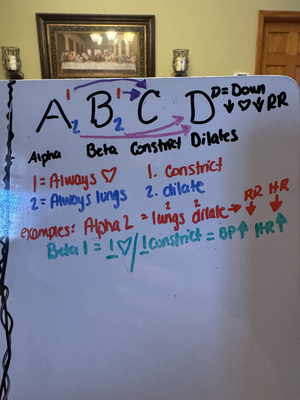 1 1 D = Down
A B C D ↓ ♡ ↓ RR
2 2
Alpha Beta Constrict Dilates
1 = Always ♡ 1. Constrict
2 = Always lungs 2. dilate
RR HR
examples: Alpha 2 = lungs dilate → ↓ ↓
2 2
Beta 1 = 1 ♡ / 1 constrict = BP ↑ HR ↑